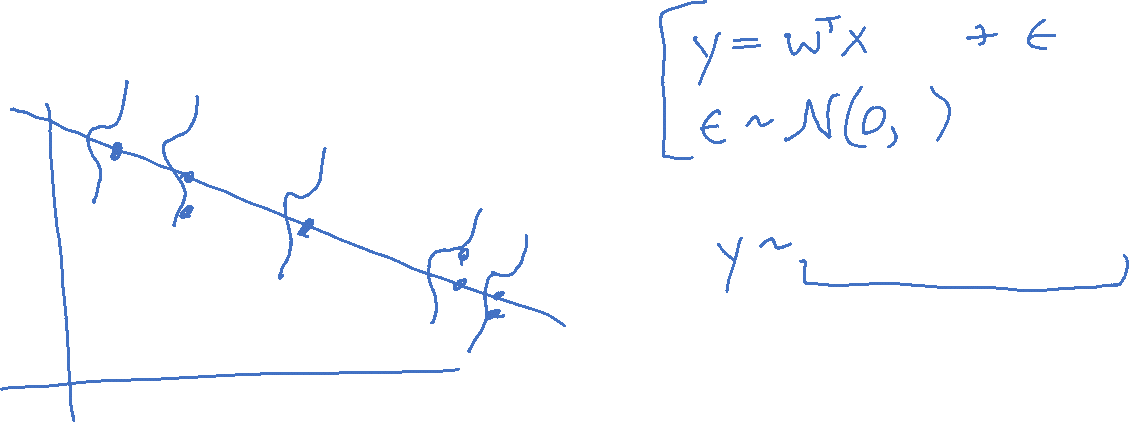 y = wᵀx + ϵ
ϵ ~ N(0, )
y ~